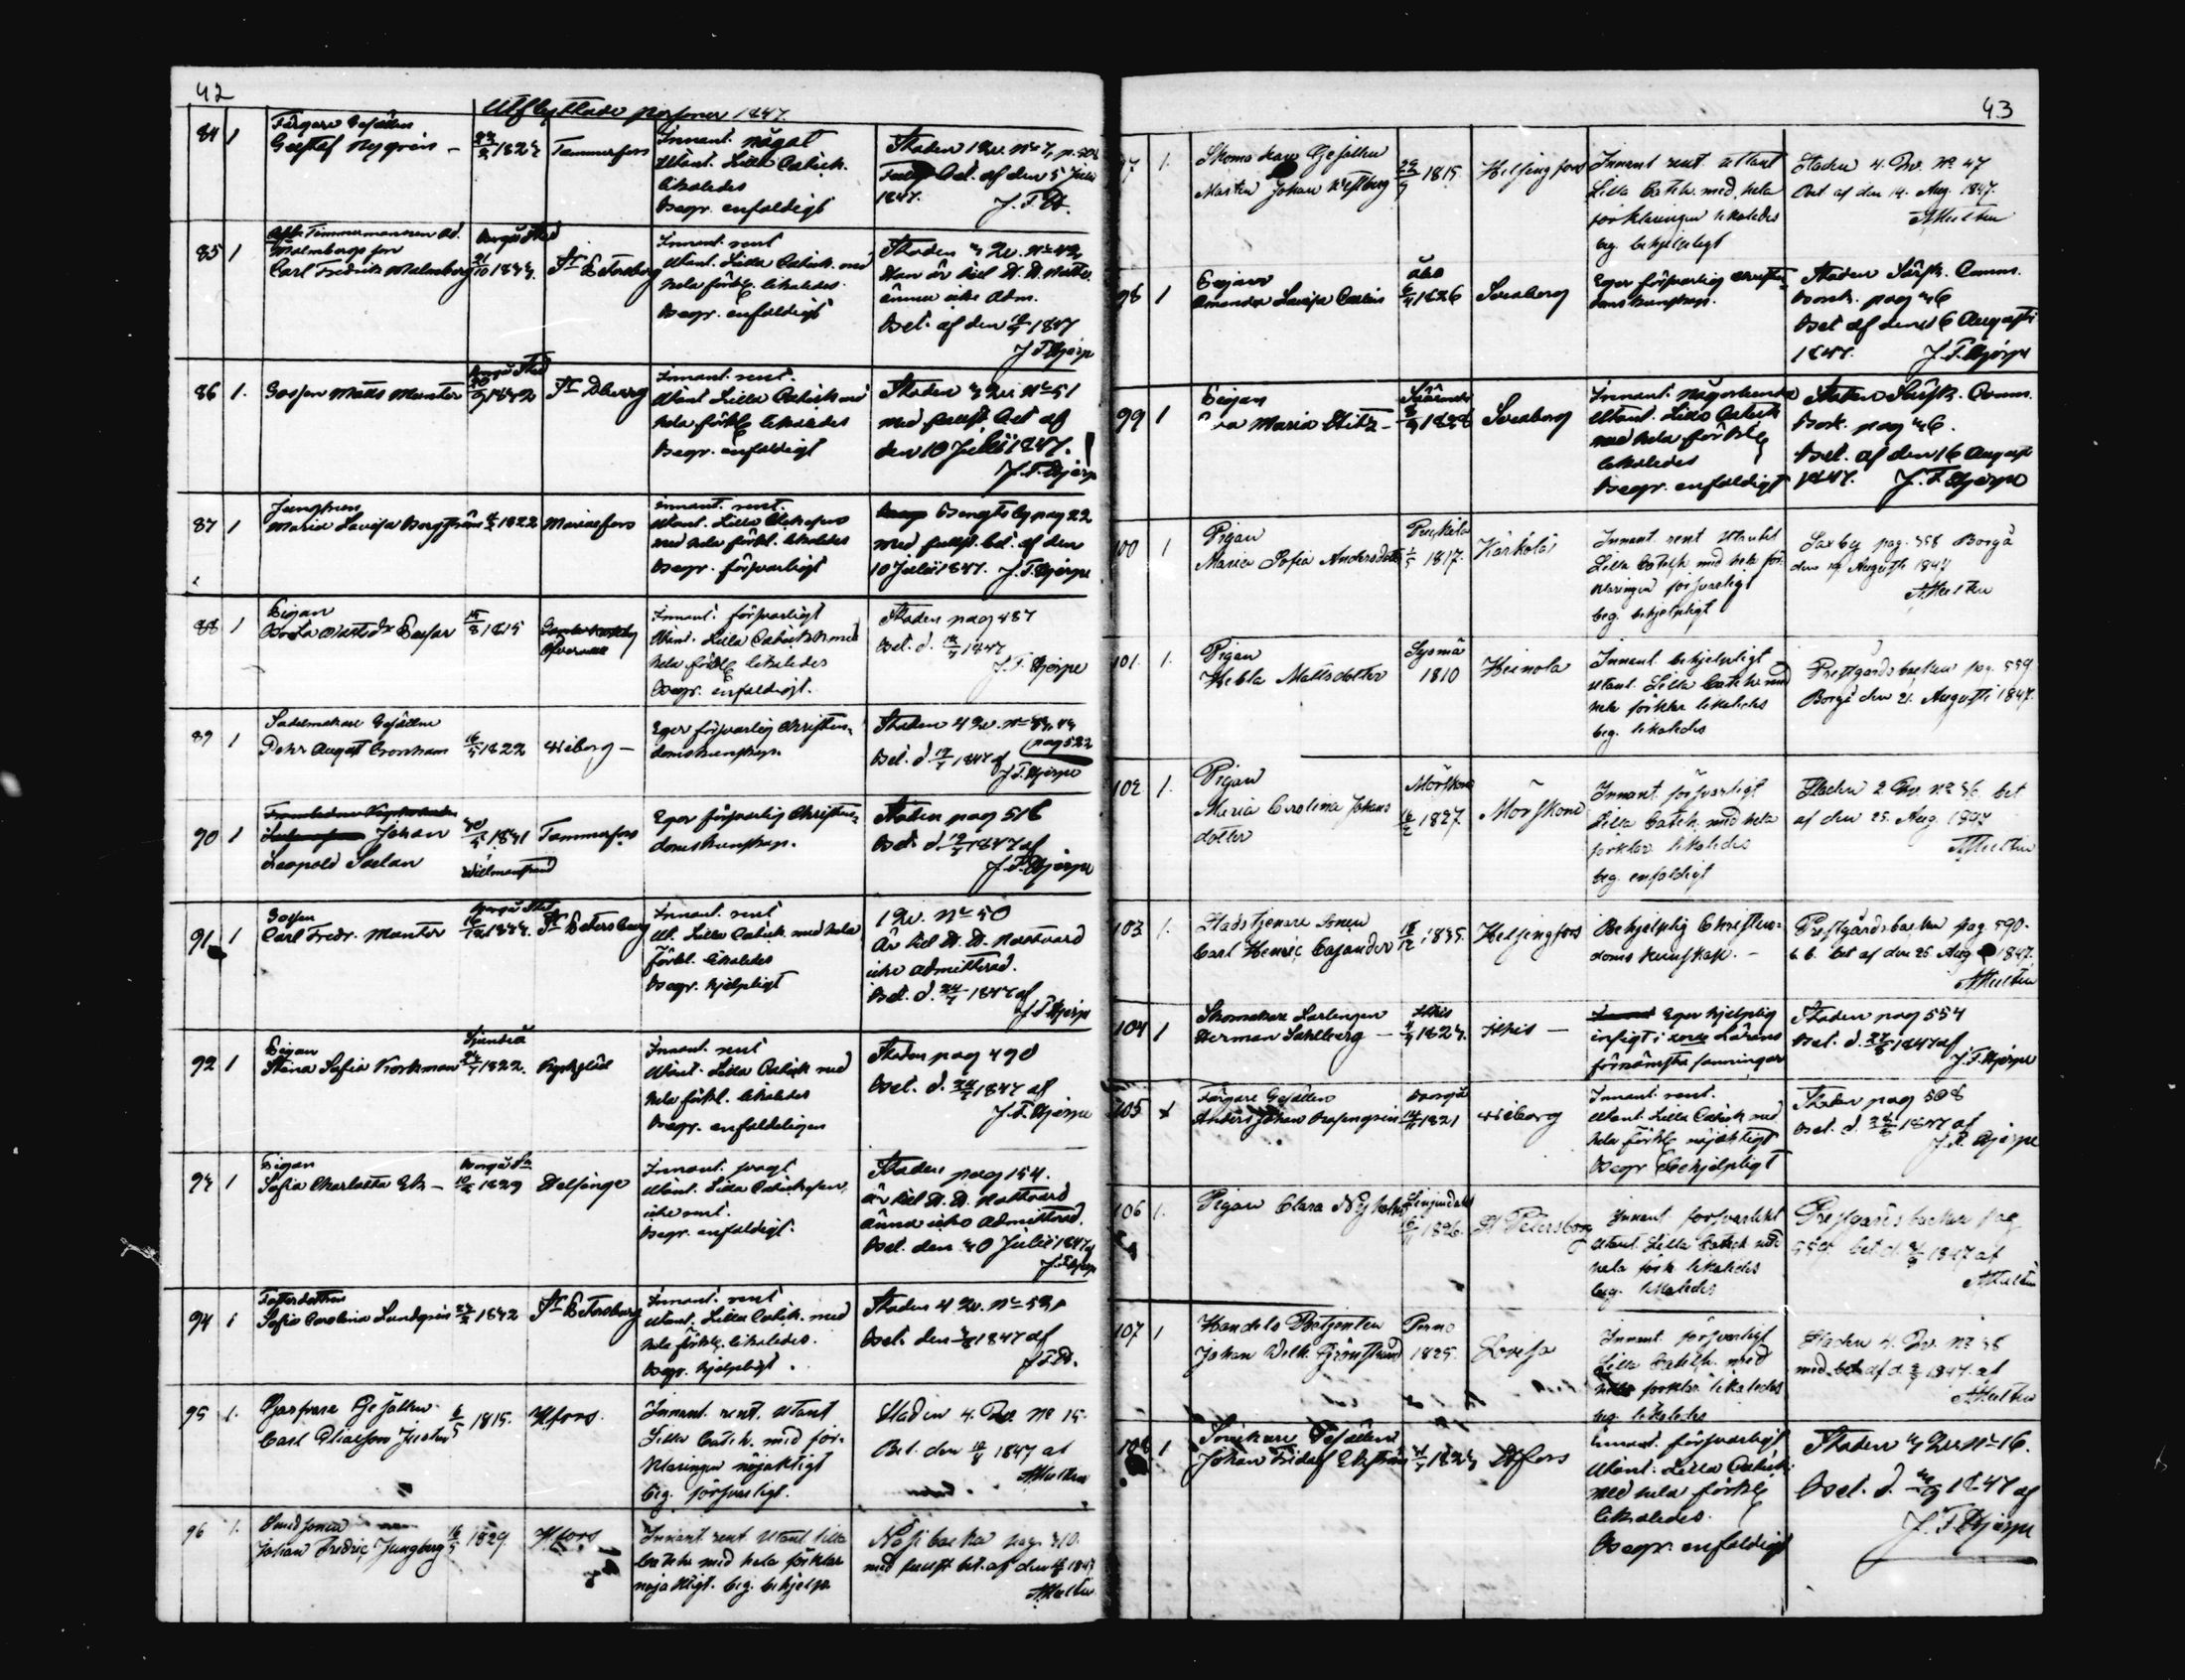 42
Utflyttade personer 1847.
84 1 Färgare Gesällen
Gustaf Nygrén - 1823 Tammerfors
Innant. något
Utant. Lilla Catech.
likaledes
Begr. enfaldigt
Staden 1 Qv. No 7, p.
Bet. af den 5 Julii
1847. J. F. H.
85 1 Timmermannen Ad.
Malmbergs son
Carl Fredrik Malmberg Borgå Stad 21/10 1833. St Petersburg
Innant. rent
Utant. Lilla Catech. med
hela förkl. likaledes.
Begr. enfaldigt
Staden 3 Qv. No 42
Han är till H. H. Nattv.
ännu icke Adm.
Bet. af den 1847
J F Hjerpe
86 1. Gossen Matts Munter Borgå Stad 1832 St Pburg
Innant. rent.
Utant Lilla Catech med
hela förkl. likaledes
Begr. enfaldigt
Staden 3 Qv. No 51
med fullst. Bet af
den 10 Julii 1847.
J. F. Hjerpe
87 1 Jungfrun
Maria Lovisa Bergström 1822 Mariaefors
Innant. rent.
Utant. Lilla Catechesen
med hela förkl. likaledes
Begr. försvarligt
Bengtsby pag 22
med fullst. bet. af den
10 Julii 1847. J. F. Hjerpe
88 1 Pigan
1815
Innant. försvarligt
Utant. Lilla Catech. med
hela förkl. likaledes
Begr. enfaldigt.
Staden pag 487
Bet. d. 1847
J. F. Hjerpe
89 1 Sadelmakare Gesällen
Pehr August Cronham 16/5 1822 Wiborg -
Eger försvarlig Christen-
domskunskap.
Staden 4 Qv. No
pag 522
Bet. d. 19/7 1847 af
J. F. Hjerpe
90 1
Johan
Leopold Saelan 1831 Tammerfors
Willmanstrand
Eger försvarlig Christen-
domskunskap.
Staden pag 516
Bet. d. 19/7 1847 af
J. F. Hjerpe
91 1 Gossen
Carl Fredr. Munter Borgå Stad 1833. St Petersburg
Innant. rent
Ut. Lilla Catech. med hela
förkl. likaledes
Begr. hjelpligt
1 Qv. No 50
är till H. H. Nattvard
icke admitterad.
Bet. d. 24/7 1847 af
J F Hjerpe
92 1 Pigan
Stina Sofia Korkman Sjundeå 1822.
Innant. rent
Utant. Lilla Catech. med
hela förkl. likaledes
Begr. enfaldeligen
Staden pag 490
Bet. d. 24/7 1847 af
J. F. Hjerpe
93 1 Pigan
Sofia Charlotta Ek - Borgå Sn 1829 Helsinge
Innant. svagt
Utant. Lilla Catechesen,
icke rent.
Begr. enfaldigt.
Staden pag 154.
är till H. H. Nattvard
ännu icke admitterad.
Bet. den 30 Julii 1847 af
J F Hjerpe
94 1 Fosterdottren
Sofia Carolina Lundgrén 1832 St Petersburg
Innant. rent
Utant. Lilla Catech. med
hela förkl. likaledes.
Begr. hjelpligt.
Staden 4 Qv. No 53,
Bet. den 1847 af
J F H.
95 1. Garfvare Gesällen
Carl Eliasson Justen 6/5 1815. Hfors.
Innant. rent. Utant
Lilla Catech. med för-
klaringen nöjaktigt
beg. försvarligt.
Staden 4. Qv. No 15.
Bet. den 1847 af
AHulthin
96 1. Smedsonen
Johan Fredric Ljungberg 16/5 1829. Hfors
Innant rent Utant lilla
Catech. med hela förklar.
nöjaktigt. beg. behjelpl.
Näsebacka pag. 310.
med fullst. bet. af den 1847
AHulthin
43
97 1. Skomakare Gesällen
Mårten Johan Westberg 29/9 1815. Helsingfors
Innant rent uttant
Lilla Catech. med hela
förklaringen likaledes
beg. behjelpligt
Staden 4. Qv. No 47
Bet af den 14. Aug. 1847.
AHulthin
98 1 Pigan
Amanda Lovisa Carlén Åbo 1826 Sveaborg
Eger försvarlig Christen-
doms kunskap.
Staden Särsk. Comm.
Bok. pag 36
Bet af den 16 Augusti
1847. J. F. Hjerpe
99 1 Pigan
Maria Stitz - 1828 Sveaborg
Innant. någorlunda
Utant. Lilla Catech
med hela förkl.
likaledes
Begr. enfaldigt
Staden Särsk. Comm.
Bok. pag 36.
Bet. af den 16 Augusti
1847. J. F. Hjerpe
100 1 Pigan
Maria Sofia Andersdotter Puckila 1/5 1817. Kärkölä
Innant rent Utantill
Lilla Catech. med hela för-
klaringen försvarligt
beg. behjelpligt
Saxby pag. 358 Borgå
den 19 Augusti 1847
AHulthin
101. 1. Pigan
Hebla Mattsdotter Sysmä 1810 Heinola
Innant. behjelpligt
utant. Lilla Catech. med
hela förklar. likaledes
beg. likaledes
Prestgårdsbacken pag. 559
Borgå den 21. Augusti 1847.
102 1. Pigan
Maria Carolina Johans
dotter Mörskom 16/2 1827. Mörskom
Innant. försvarligt
Lilla Catech. med hela
förklar. likaledes
beg. enfaldigt
Staden 2 Qv. No 36 bet
af den 25. Aug. 1847
AHulthin
103 1. Stadstjenare Sonen
Carl Henric Cajander 18/12 1835. Helsingfors
Behjelplig Christen-
doms kunskap. -
Prestgårdsbacken pag. 590.
bet af den 26 Aug 1847.
AHulthin
104 1 Skomakare Lärlingen
Herman Sahlberg - Ithis 1823. Ithis -
Eger hjelplig
insigt i Lärans
förnämsta sanningar
Staden pag 554
Bet. d. 27/8 1847 af
J. F. Hjerpe
105 1 Färgare Gesällen
Anders Johan Rosengrén Borgå 14/11 1821 Wiborg
Innant. rent.
Utant. Lilla Catech. med
hela förkl. nöjaktigt
Begr. behjelpligt
Staden pag 508
Bet. d. 1847 af
J. F. Hjerpe
106 1. Pigan Clara Liljendal 1826. St Petersborg
Innant försvarligt
Utant. Lilla Catech med
hela förk likaledes
beg. likaledes
Prestgårdsbacken pag
bet d. 1847 af
AHulthin
107 1 Handels Betjenten
Johan Wilh. Grönstrand Perno 1825. Lovisa
Innant. försvarligt
Lilla Catech. med
hela förklar likaledes
beg. likaledes
Staden 4. Qv. No 38
med bet af d. 1847. af
AHulthin
108 1 Snickare Gesällen
Johan Fridolf Ekström 1823 Hfors
Innant. försvarligt
Utant. Lilla Catech.
med hela förkl.
likaledes.
Begr. enfaldigt
Staden 3 Qv. No 16.
Bet. d. 1847 af
J. F. Hjerpe